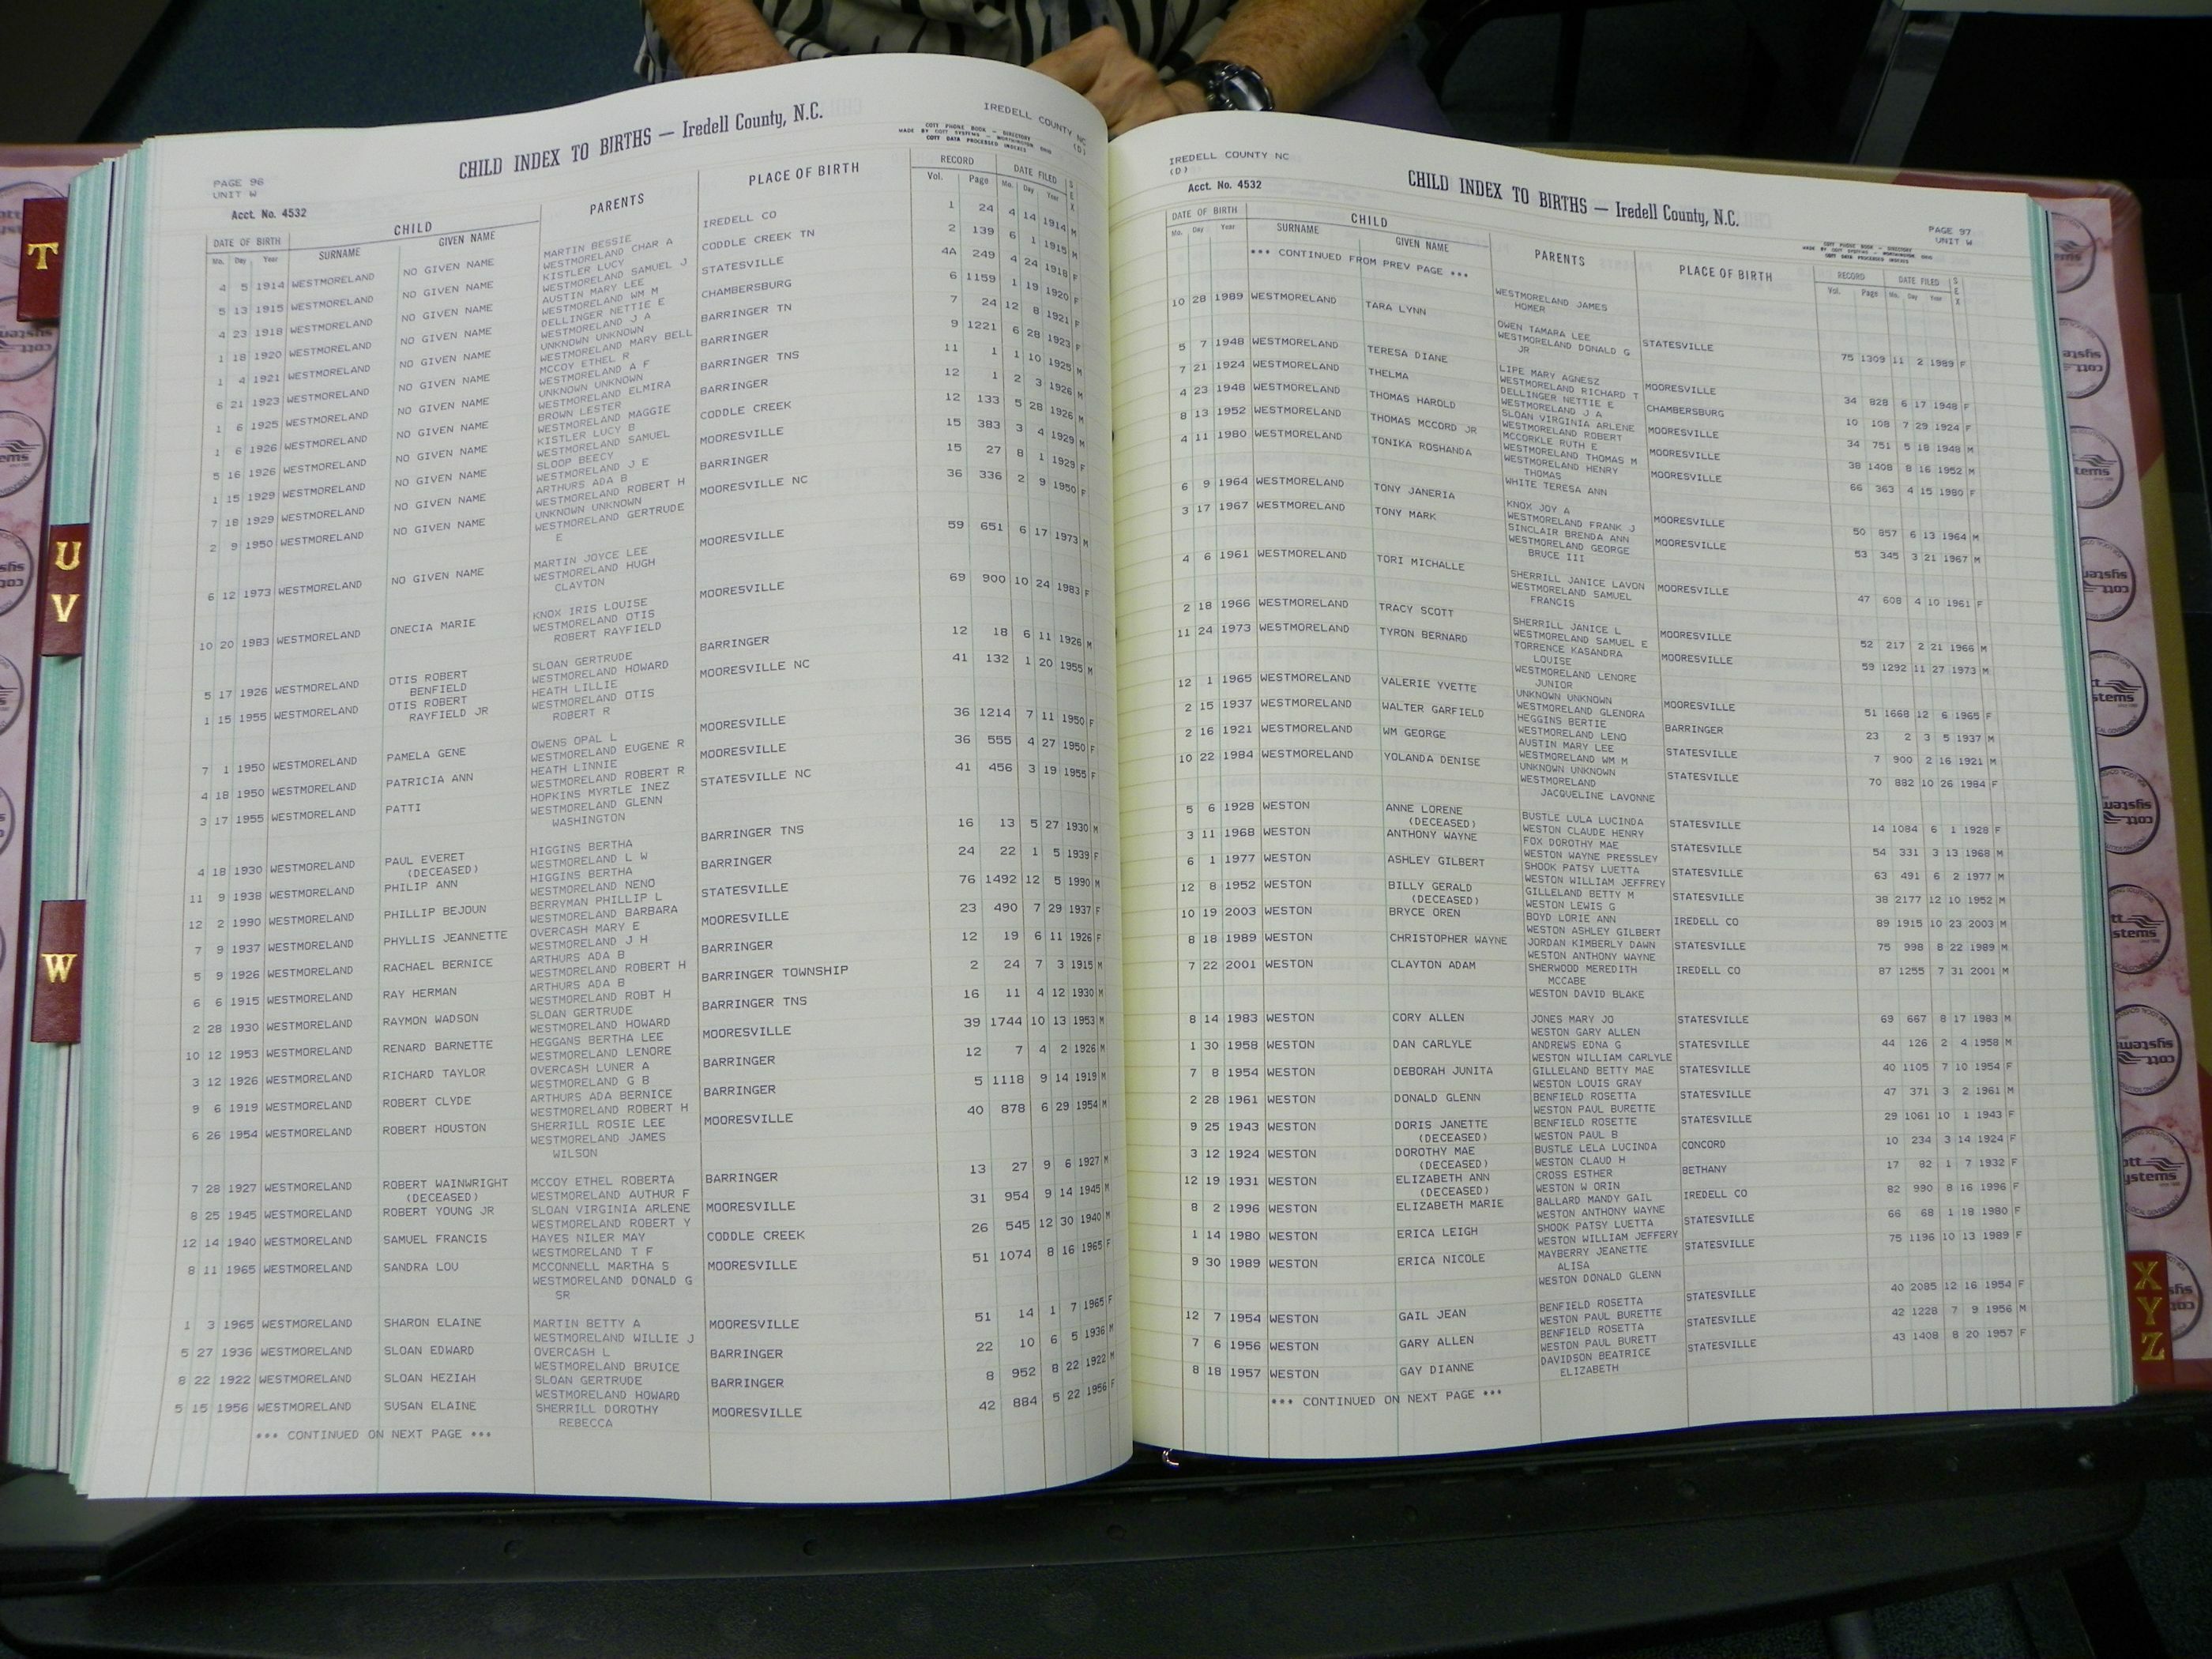 CHILD INDEX TO BIRTHS — Iredell County, N.C.
IREDELL COUNTY NC
(D)
COTT PHONE BOOK — DIRECTORY
MADE BY COTT SYSTEMS — WORTHINGTON OHIO
COTT DATA PROCESSED INDEXES
PAGE 96
UNIT W
Acct. No. 4532
DATE OF BIRTH CHILD PARENTS PLACE OF BIRTH RECORD DATE FILED SEX
Mo. Day Year SURNAME GIVEN NAME Vol. Page Mo. Day Year
4 5 1914 WESTMORELAND NO GIVEN NAME MARTIN BESSIE IREDELL CO 1 24 4 14 1914 M
WESTMORELAND CHAR A
5 13 1915 WESTMORELAND NO GIVEN NAME KISTLER LUCY CODDLE CREEK TN 2 139 6 1 1915 M
WESTMORELAND SAMUEL J
4 23 1918 WESTMORELAND NO GIVEN NAME AUSTIN MARY LEE STATESVILLE 4A 249 4 24 1918 F
WESTMORELAND WM M
1 18 1920 WESTMORELAND NO GIVEN NAME DELLINGER NETTIE E CHAMBERSBURG 6 1159 1 19 1920 F
WESTMORELAND J A
1 4 1921 WESTMORELAND NO GIVEN NAME UNKNOWN UNKNOWN BARRINGER TN 7 24 12 8 1921 F
WESTMORELAND MARY BELL
6 21 1923 WESTMORELAND NO GIVEN NAME MCCOY ETHEL R BARRINGER 9 1221 6 28 1923 F
WESTMORELAND A F
1 6 1925 WESTMORELAND NO GIVEN NAME UNKNOWN UNKNOWN BARRINGER TNS 11 1 1 10 1925 M
WESTMORELAND ELMIRA
1 6 1926 WESTMORELAND NO GIVEN NAME BROWN LESTER BARRINGER 12 1 2 3 1926 M
WESTMORELAND MAGGIE
5 16 1926 WESTMORELAND NO GIVEN NAME KISTLER LUCY B CODDLE CREEK 12 133 5 28 1926 M
WESTMORELAND SAMUEL
1 15 1929 WESTMORELAND NO GIVEN NAME SLOOP BEECY MOORESVILLE 15 383 3 4 1929 M
WESTMORELAND J E
7 18 1929 WESTMORELAND NO GIVEN NAME ARTHURS ADA B BARRINGER 15 27 8 1 1929 F
WESTMORELAND ROBERT H
2 9 1950 WESTMORELAND NO GIVEN NAME UNKNOWN UNKNOWN MOORESVILLE NC 36 336 2 9 1950 F
WESTMORELAND GERTRUDE
E
6 12 1973 WESTMORELAND NO GIVEN NAME MARTIN JOYCE LEE MOORESVILLE 59 651 6 17 1973 M
WESTMORELAND HUGH
CLAYTON
10 20 1983 WESTMORELAND ONECIA MARIE KNOX IRIS LOUISE MOORESVILLE 69 900 10 24 1983 F
WESTMORELAND OTIS
ROBERT RAYFIELD
5 17 1926 WESTMORELAND OTIS ROBERT SLOAN GERTRUDE BARRINGER 12 18 6 11 1926 M
BENFIELD WESTMORELAND HOWARD
1 15 1955 WESTMORELAND OTIS ROBERT HEATH LILLIE MOORESVILLE NC 41 132 1 20 1955 M
RAYFIELD JR WESTMORELAND OTIS
ROBERT R
7 1 1950 WESTMORELAND PAMELA GENE OWENS OPAL L MOORESVILLE 36 1214 7 11 1950 F
WESTMORELAND EUGENE R
4 18 1950 WESTMORELAND PATRICIA ANN HEATH LINNIE MOORESVILLE 36 555 4 27 1950 F
WESTMORELAND ROBERT R
3 17 1955 WESTMORELAND PATTI HOPKINS MYRTLE INEZ STATESVILLE NC 41 456 3 19 1955 F
WESTMORELAND GLENN
WASHINGTON
4 18 1930 WESTMORELAND PAUL EVERET HIGGINS BERTHA BARRINGER TNS 16 13 5 27 1930 M
(DECEASED) WESTMORELAND L W
11 9 1938 WESTMORELAND PHILIP ANN HIGGINS BERTHA BARRINGER 24 22 1 5 1939 F
WESTMORELAND NENO
12 2 1990 WESTMORELAND PHILLIP BEJOUN BERRYMAN PHILLIP L STATESVILLE 76 1492 12 5 1990 M
WESTMORELAND BARBARA
7 9 1937 WESTMORELAND PHYLLIS JEANNETTE OVERCASH MARY E MOORESVILLE 23 490 7 29 1937 F
WESTMORELAND J H
5 9 1926 WESTMORELAND RACHAEL BERNICE ARTHURS ADA B BARRINGER 12 19 6 11 1926 F
WESTMORELAND ROBERT H
6 6 1915 WESTMORELAND RAY HERMAN ARTHURS ADA B BARRINGER TOWNSHIP 2 24 7 3 1915 M
WESTMORELAND ROBT H
2 28 1930 WESTMORELAND RAYMON WADSON SLOAN GERTRUDE BARRINGER TNS 16 11 4 12 1930 M
WESTMORELAND HOWARD
10 12 1953 WESTMORELAND RENARD BARNETTE HEGGANS BERTHA LEE MOORESVILLE 39 1744 10 13 1953 M
WESTMORELAND LENORE
3 12 1926 WESTMORELAND RICHARD TAYLOR OVERCASH LUNER A BARRINGER 12 7 4 2 1926 M
WESTMORELAND G B
9 6 1919 WESTMORELAND ROBERT CLYDE ARTHURS ADA BERNICE BARRINGER 5 1118 9 14 1919 M
WESTMORELAND ROBERT H
6 26 1954 WESTMORELAND ROBERT HOUSTON SHERRILL ROSIE LEE MOORESVILLE 40 878 6 29 1954 M
WESTMORELAND JAMES
WILSON
7 28 1927 WESTMORELAND ROBERT WAINWRIGHT MCCOY ETHEL ROBERTA BARRINGER 13 27 9 6 1927 M
(DECEASED) WESTMORELAND AUTHUR F
8 25 1945 WESTMORELAND ROBERT YOUNG JR SLOAN VIRGINIA ARLENE MOORESVILLE 31 954 9 14 1945 M
WESTMORELAND ROBERT Y
12 14 1940 WESTMORELAND SAMUEL FRANCIS HAYES NILER MAY CODDLE CREEK 26 545 12 30 1940 M
WESTMORELAND T F
8 11 1965 WESTMORELAND SANDRA LOU MCCONNELL MARTHA S MOORESVILLE 51 1074 8 16 1965 F
WESTMORELAND DONALD G
SR
1 3 1965 WESTMORELAND SHARON ELAINE MARTIN BETTY A MOORESVILLE 51 14 1 7 1965 F
WESTMORELAND WILLIE J
5 27 1936 WESTMORELAND SLOAN EDWARD OVERCASH L BARRINGER 22 10 6 5 1936 M
WESTMORELAND BRUICE
8 22 1922 WESTMORELAND SLOAN HEZIAH SLOAN GERTRUDE BARRINGER 8 952 8 22 1922 M
WESTMORELAND HOWARD
5 15 1956 WESTMORELAND SUSAN ELAINE SHERRILL DOROTHY MOORESVILLE 42 884 5 22 1956 F
REBECCA
*** CONTINUED ON NEXT PAGE ***
IREDELL COUNTY NC
(D)
Acct. No. 4532
CHILD INDEX TO BIRTHS — Iredell County, N.C.
PAGE 97
UNIT W
COTT PHONE BOOK — DIRECTORY
MADE BY COTT SYSTEMS — WORTHINGTON OHIO
COTT DATA PROCESSED INDEXES
DATE OF BIRTH CHILD PARENTS PLACE OF BIRTH RECORD DATE FILED SEX
Mo. Day Year SURNAME GIVEN NAME Vol. Page Mo. Day Year
*** CONTINUED FROM PREV PAGE ***
WESTMORELAND JAMES
HOMER
10 28 1989 WESTMORELAND TARA LYNN OWEN TAMARA LEE STATESVILLE 75 1309 11 2 1989 F
WESTMORELAND DONALD G
JR
5 7 1948 WESTMORELAND TERESA DIANE LIPE MARY AGNESZ MOORESVILLE 34 828 6 17 1948 F
WESTMORELAND RICHARD T
7 21 1924 WESTMORELAND THELMA DELLINGER NETTIE E CHAMBERSBURG 10 108 7 29 1924 F
WESTMORELAND J A
4 23 1948 WESTMORELAND THOMAS HAROLD SLOAN VIRGINIA ARLENE MOORESVILLE 34 751 5 18 1948 M
WESTMORELAND ROBERT
8 13 1952 WESTMORELAND THOMAS MCCORD JR MCCORKLE RUTH E MOORESVILLE 38 1408 8 16 1952 M
WESTMORELAND THOMAS M
4 11 1980 WESTMORELAND TONIKA ROSHANDA WESTMORELAND HENRY MOORESVILLE 66 363 4 15 1980 F
THOMAS
WHITE TERESA ANN
6 9 1964 WESTMORELAND TONY JANERIA KNOX JOY A MOORESVILLE 50 857 6 13 1964 M
WESTMORELAND FRANK J
3 17 1967 WESTMORELAND TONY MARK SINCLAIR BRENDA ANN MOORESVILLE 53 345 3 21 1967 M
WESTMORELAND GEORGE
BRUCE III
4 6 1961 WESTMORELAND TORI MICHALLE SHERRILL JANICE LAVON MOORESVILLE 47 608 4 10 1961 F
WESTMORELAND SAMUEL
FRANCIS
2 18 1966 WESTMORELAND TRACY SCOTT SHERRILL JANICE L MOORESVILLE 52 217 2 21 1966 M
WESTMORELAND SAMUEL E
11 24 1973 WESTMORELAND TYRON BERNARD TORRENCE KASANDRA MOORESVILLE 59 1292 11 27 1973 M
LOUISE
WESTMORELAND LENORE
JUNIOR
12 1 1965 WESTMORELAND VALERIE YVETTE UNKNOWN UNKNOWN MOORESVILLE 51 1668 12 6 1965 F
WESTMORELAND GLENORA
2 15 1937 WESTMORELAND WALTER GARFIELD HEGGINS BERTIE BARRINGER 23 2 3 5 1937 M
WESTMORELAND LENO
2 16 1921 WESTMORELAND WM GEORGE AUSTIN MARY LEE STATESVILLE 7 900 2 16 1921 M
WESTMORELAND WM M
10 22 1984 WESTMORELAND YOLANDA DENISE UNKNOWN UNKNOWN STATESVILLE 70 882 10 26 1984 F
WESTMORELAND
JACQUELINE LAVONNE
5 6 1928 WESTON ANNE LORENE BUSTLE LULA LUCINDA STATESVILLE 14 1084 6 1 1928 F
(DECEASED) WESTON CLAUDE HENRY
3 11 1968 WESTON ANTHONY WAYNE FOX DOROTHY MAE STATESVILLE 54 331 3 13 1968 M
WESTON WAYNE PRESSLEY
6 1 1977 WESTON ASHLEY GILBERT SHOOK PATSY LUETTA STATESVILLE 63 491 6 2 1977 M
WESTON WILLIAM JEFFREY
12 8 1952 WESTON BILLY GERALD GILLELAND BETTY M STATESVILLE 38 2177 12 10 1952 M
(DECEASED) WESTON LEWIS G
10 19 2003 WESTON BRYCE OREN BOYD LORIE ANN IREDELL CO 89 1915 10 23 2003 M
WESTON ASHLEY GILBERT
8 18 1989 WESTON CHRISTOPHER WAYNE JORDAN KIMBERLY DAWN STATESVILLE 75 998 8 22 1989 M
WESTON ANTHONY WAYNE
7 22 2001 WESTON CLAYTON ADAM SHERWOOD MEREDITH IREDELL CO 87 1255 7 31 2001 M
MCCABE
WESTON DAVID BLAKE
8 14 1983 WESTON CORY ALLEN JONES MARY JO STATESVILLE 69 667 8 17 1983 M
WESTON GARY ALLEN
1 30 1958 WESTON DAN CARLYLE ANDREWS EDNA G STATESVILLE 44 126 2 4 1958 M
WESTON WILLIAM CARLYLE
7 8 1954 WESTON DEBORAH JUNITA GILLELAND BETTY MAE STATESVILLE 40 1105 7 10 1954 F
WESTON LOUIS GRAY
2 28 1961 WESTON DONALD GLENN BENFIELD ROSETTA STATESVILLE 47 371 3 2 1961 M
WESTON PAUL BURETTE
9 25 1943 WESTON DORIS JANETTE BENFIELD ROSETTE STATESVILLE 29 1061 10 1 1943 F
(DECEASED) WESTON PAUL B
3 12 1924 WESTON DOROTHY MAE BUSTLE LELA LUCINDA CONCORD 10 234 3 14 1924 F
(DECEASED) WESTON CLAUD H
12 19 1931 WESTON ELIZABETH ANN CROSS ESTHER BETHANY 17 82 1 7 1932 F
(DECEASED) WESTON W ORIN
8 2 1996 WESTON ELIZABETH MARIE BALLARD MANDY GAIL IREDELL CO 82 990 8 16 1996 F
WESTON ANTHONY WAYNE
1 14 1980 WESTON ERICA LEIGH SHOOK PATSY LUETTA STATESVILLE 66 68 1 18 1980 F
WESTON WILLIAM JEFFERY
9 30 1989 WESTON ERICA NICOLE MAYBERRY JEANETTE STATESVILLE 75 1196 10 13 1989 F
ALISA
WESTON DONALD GLENN
12 7 1954 WESTON GAIL JEAN BENFIELD ROSETTA STATESVILLE 40 2085 12 16 1954 F
WESTON PAUL BURETTE
7 6 1956 WESTON GARY ALLEN BENFIELD ROSETTA STATESVILLE 42 1228 7 9 1956 M
WESTON PAUL BURETT
8 18 1957 WESTON GAY DIANNE DAVIDSON BEATRICE STATESVILLE 43 1408 8 20 1957 F
ELIZABETH
*** CONTINUED ON NEXT PAGE ***
T
U
V
W
X
Y
Z
cott
systems